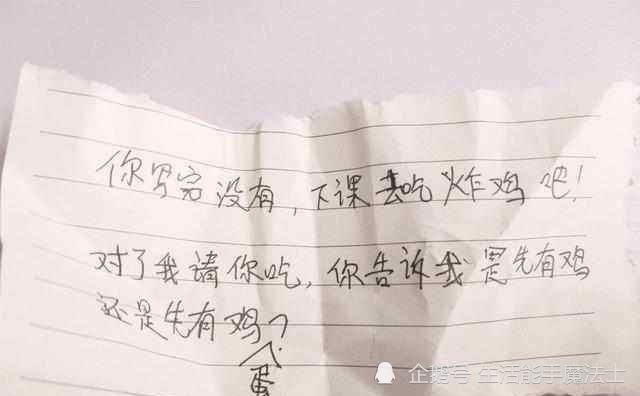 你写完没有，下课去吃炸鸡吧！
对了我请你吃，你告诉我是先有鸡
还是先有鸡？
蛋
企鹅号 生活能手魔法士